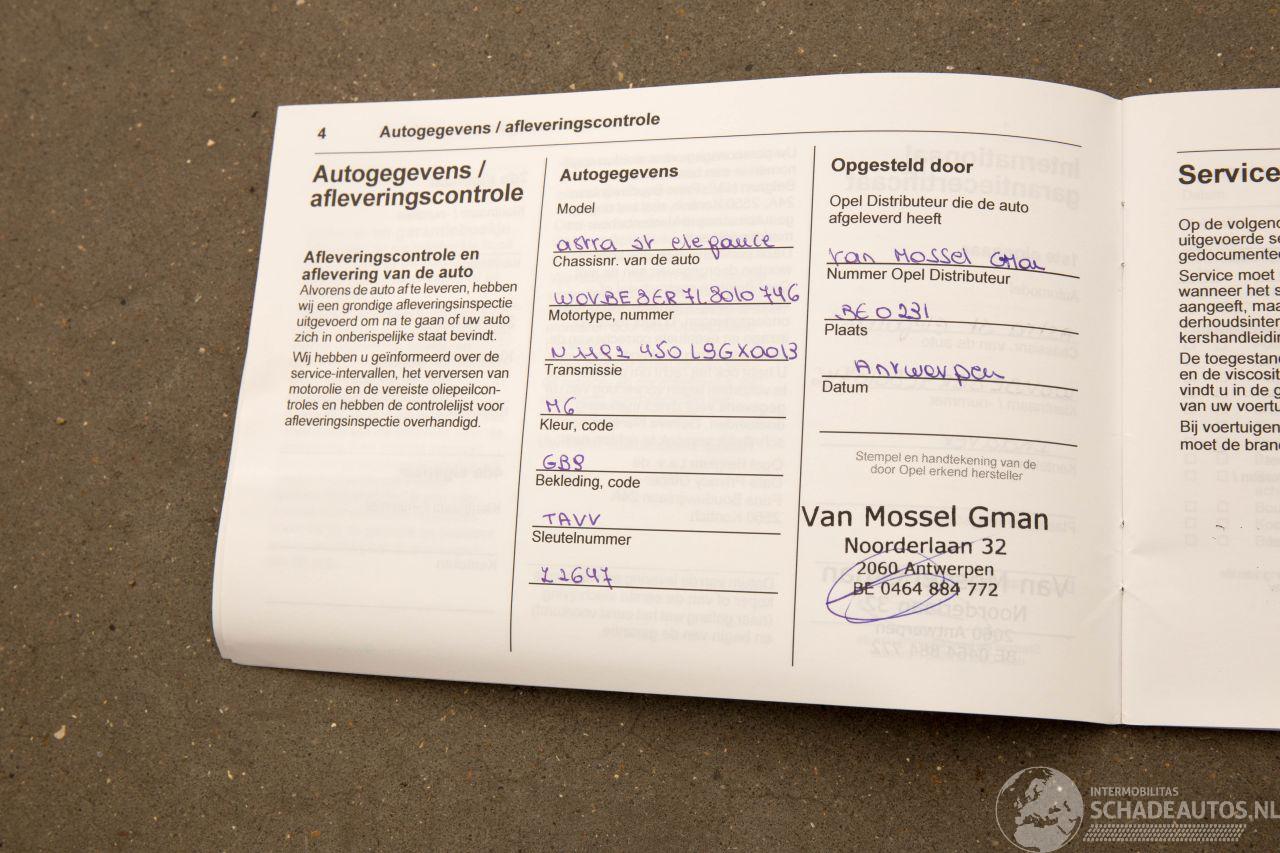 4 Autogegevens / afleveringscontrole
Autogegevens /
afleveringscontrole
Afleveringscontrole en
aflevering van de auto
Alvorens de auto af te leveren, hebben
wij een grondige afleveringsinspectie
uitgevoerd om na te gaan of uw auto
zich in onberispelijke staat bevindt.
Wij hebben u geïnformeerd over de
service-intervallen, het verversen van
motorolie en de vereiste oliepeilcon-
troles en hebben de controlelijst voor
afleveringsinspectie overhandigd.
Autogegevens
Model
astra st elegance
Chassisnr. van de auto
WOVBE8ER7L8010746
Motortype, nummer
Transmissie
M6
Kleur, code
GB8
Bekleding, code
TAVV
Sleutelnummer
Z2647
Opgesteld door
Opel Distributeur die de auto
afgeleverd heeft
Van Mossel Gman
Nummer Opel Distributeur
BE0231
Plaats
Antwerpen
Datum
Stempel en handtekening van de
door Opel erkend hersteller
Van Mossel Gman
Noorderlaan 32
2060 Antwerpen
BE 0464 884 772
Service
Op de volgend
uitgevoerde se
gedocumentee
Service moet
wanneer het s
aangeeft, maa
derhoudsinter
kershandleidin
De toegestan
en de viscosit
vindt u in de g
van uw voertu
Bij voertuigen
moet de bran
INTERMOBILITAS
SCHADEAUTOS.NL